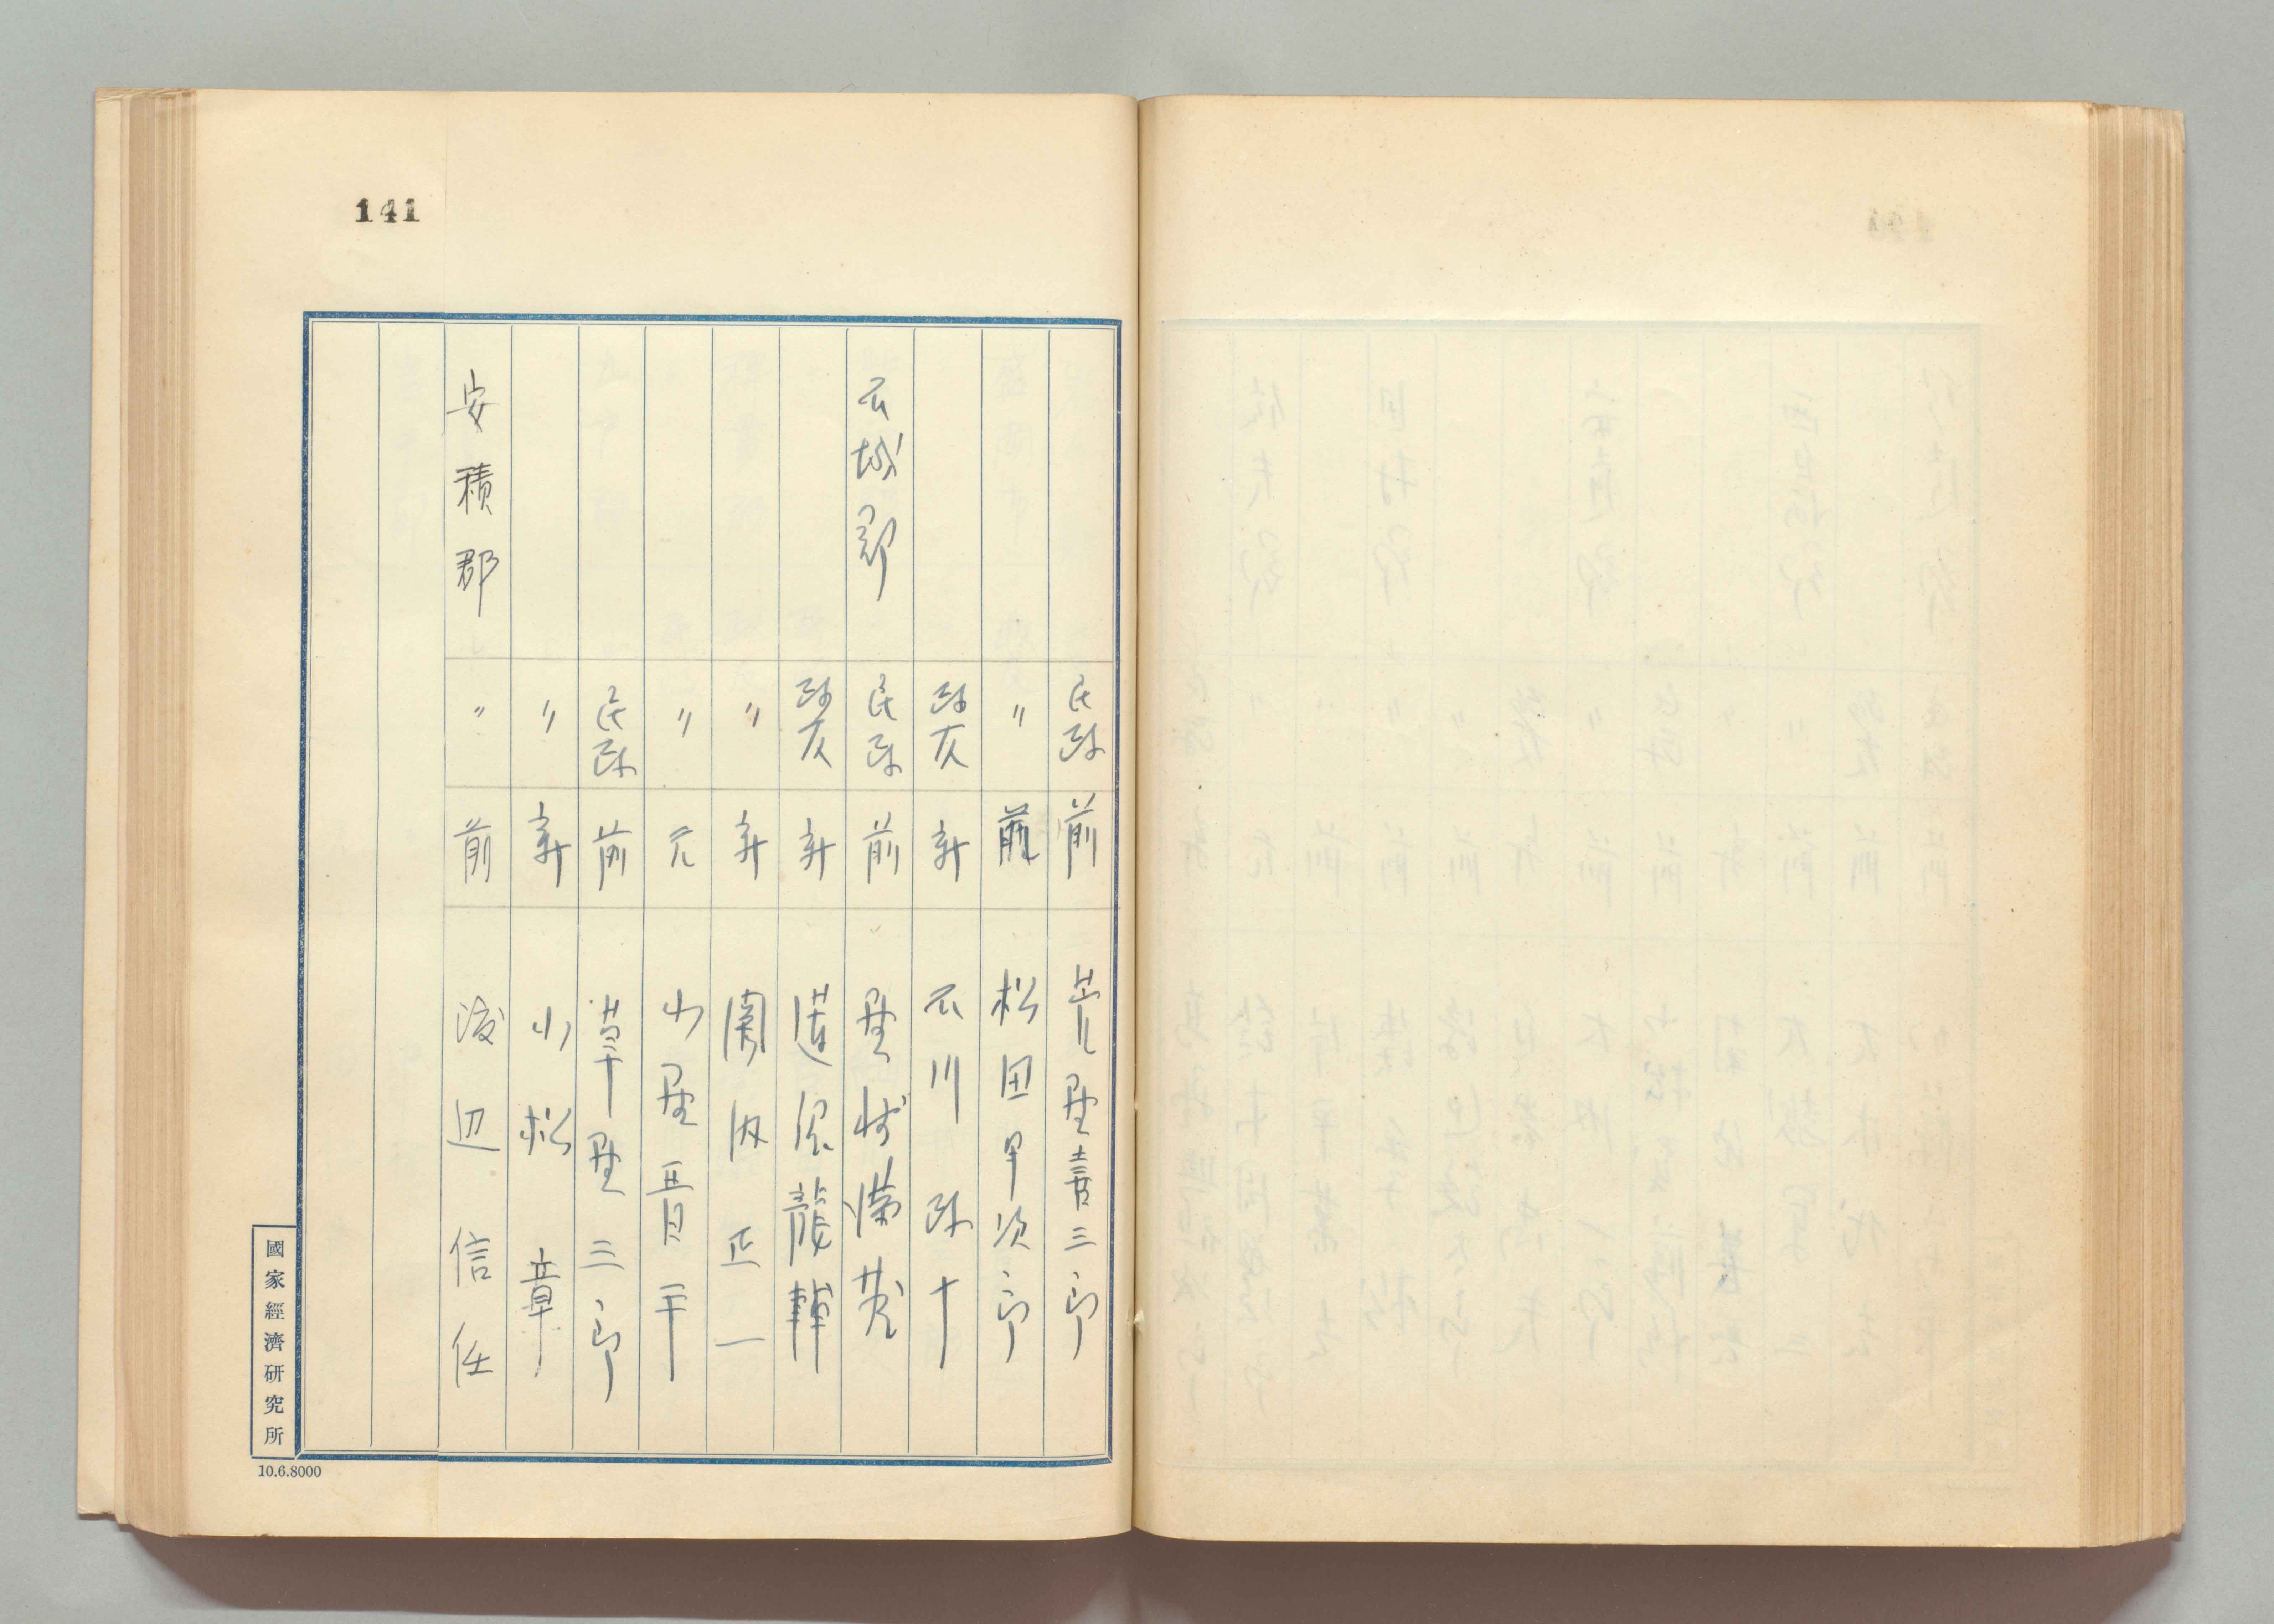 141
民政 前 荒野喜三郎
〃 前 松田 次郎
政友 新 石川政十
石城郡 民政 前 野崎満
政友 新
〃 新 関内正一
〃 元 小野晋平
民政 前 草野三郎
〃 新 小松章
安積郡 〃 前 渡辺信任
國家經濟研究所
10.6.8000